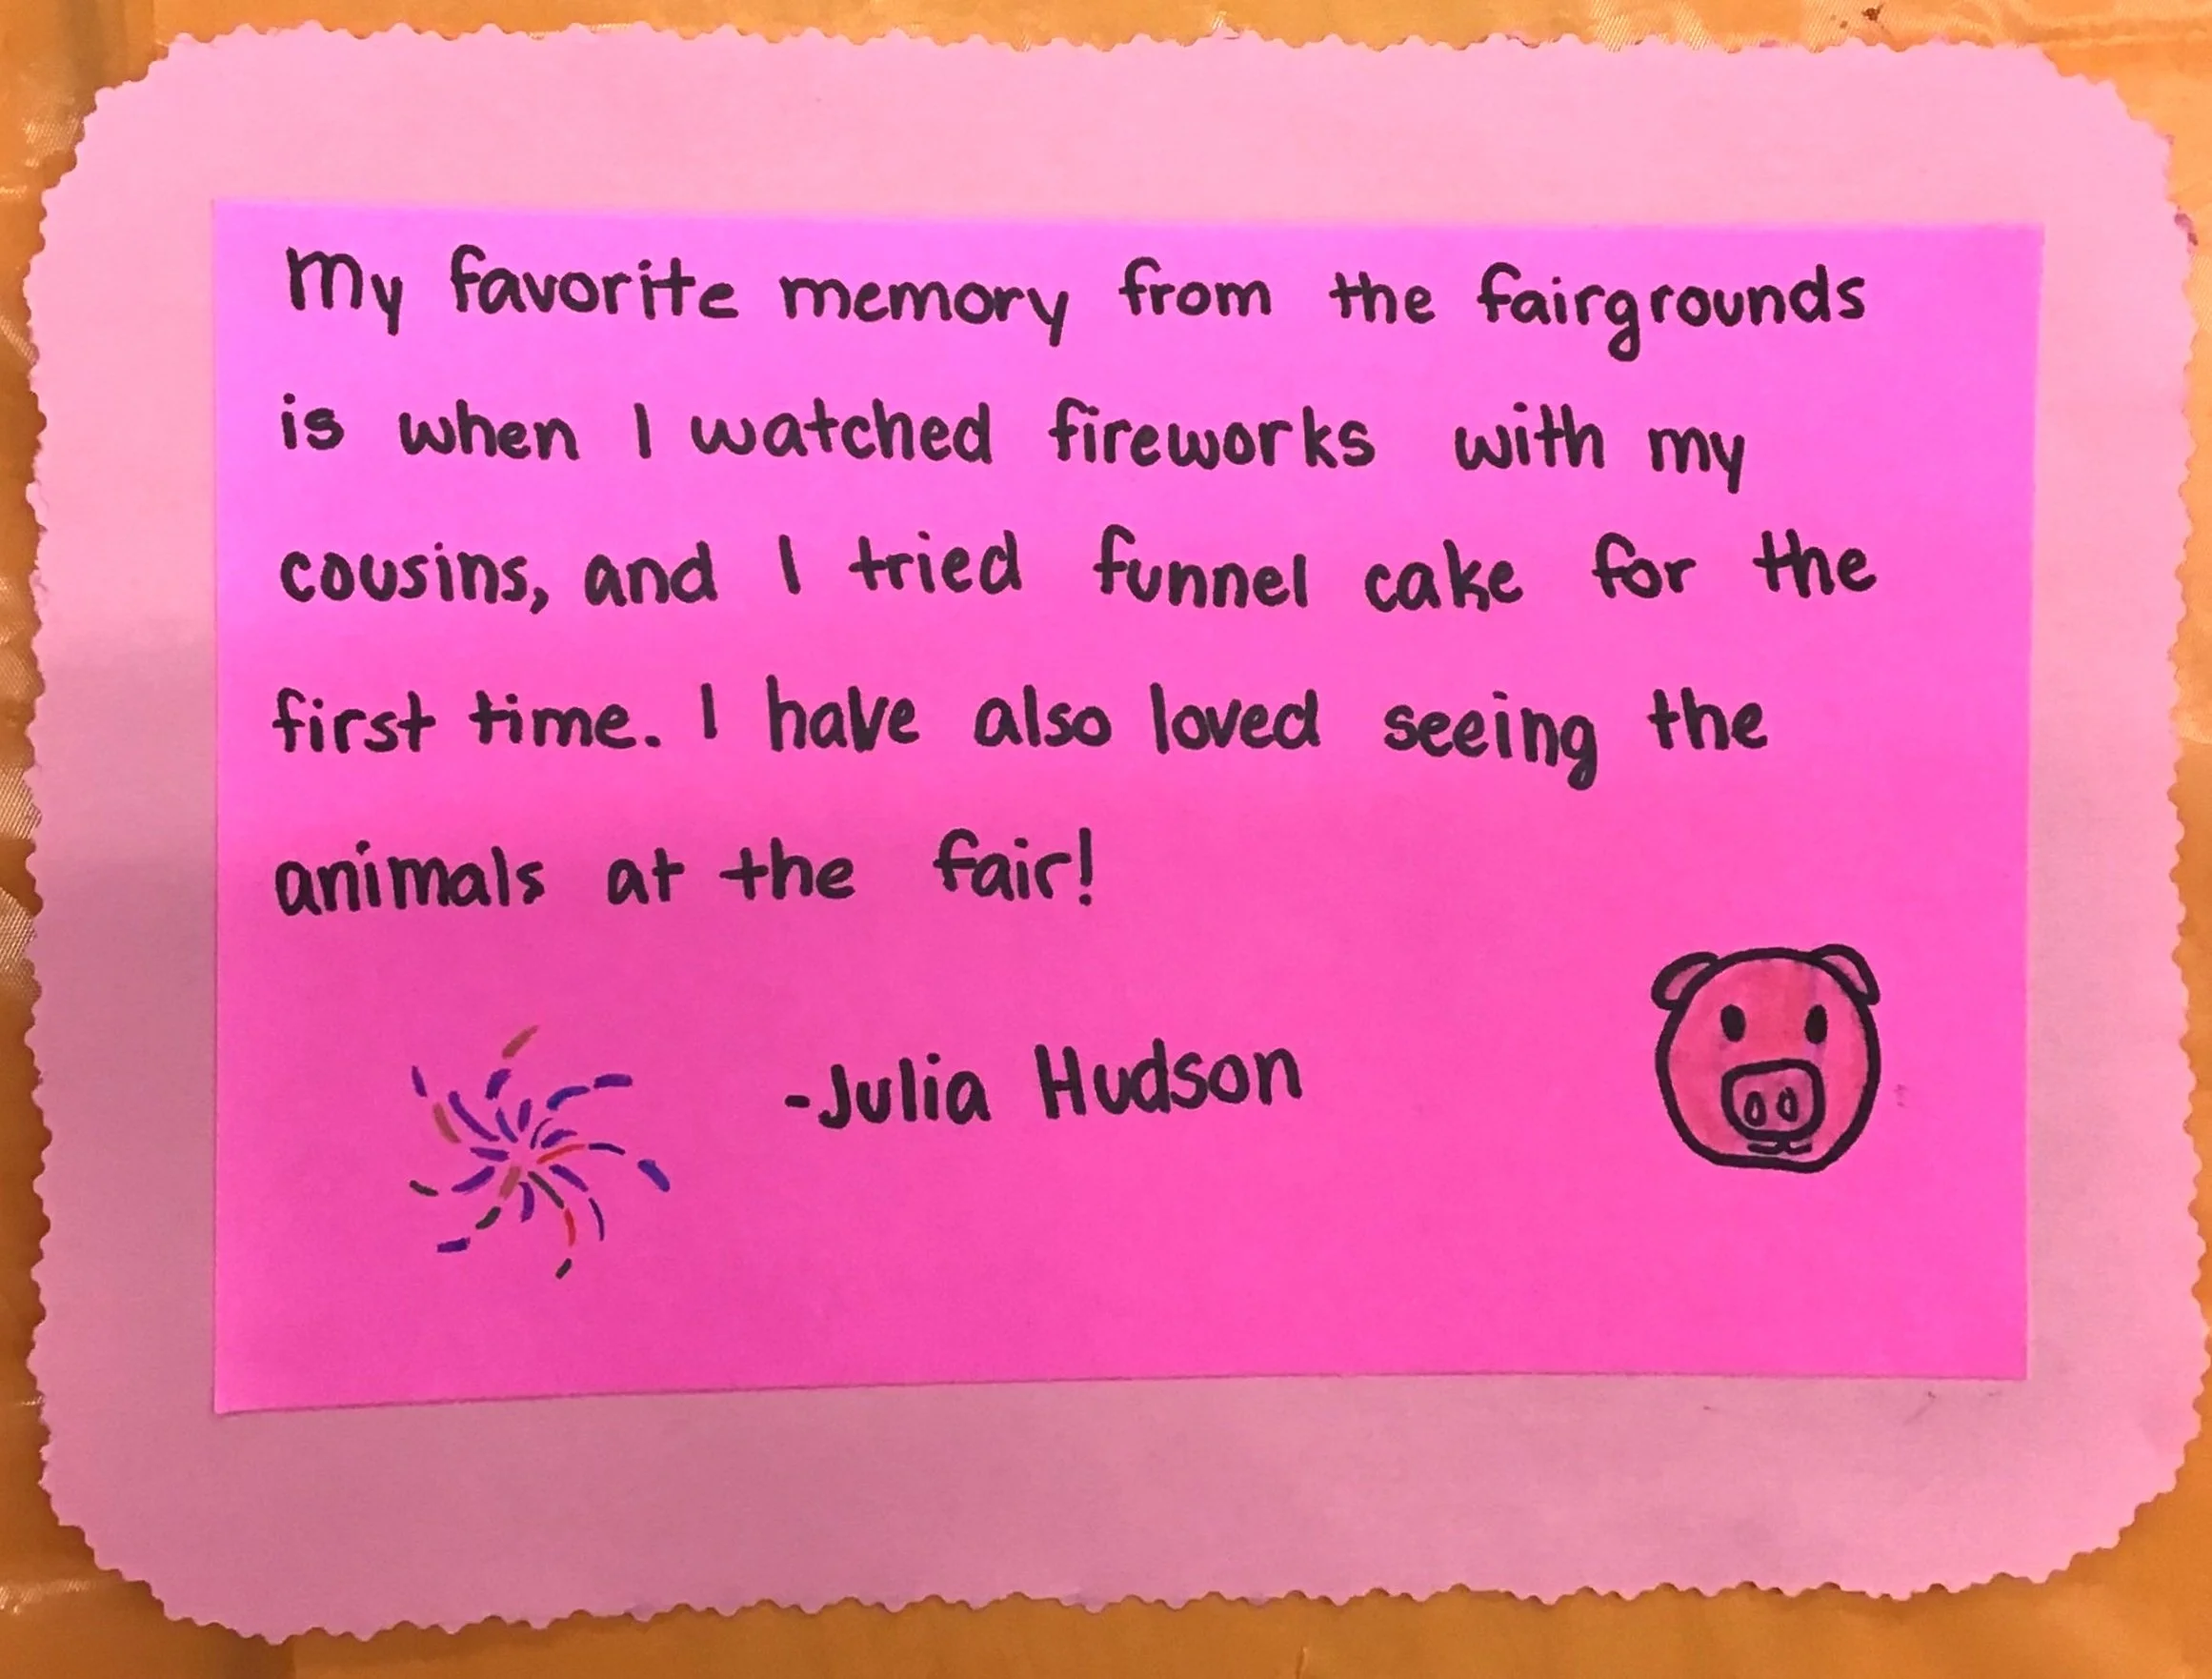 My favorite memory from the fairgrounds
is when I watched fireworks with my
cousins, and I tried funnel cake for the
first time. I have also loved seeing the
animals at the fair!
-Julia Hudson